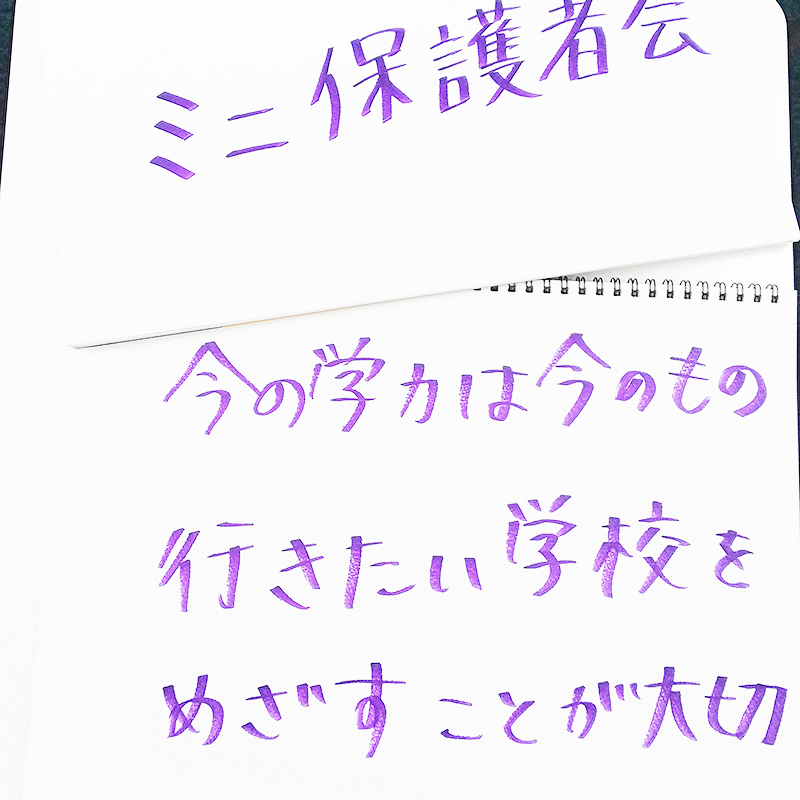 ミニ保護者会
今の学力は今のもの
行きたい学校を
めざすことが大切